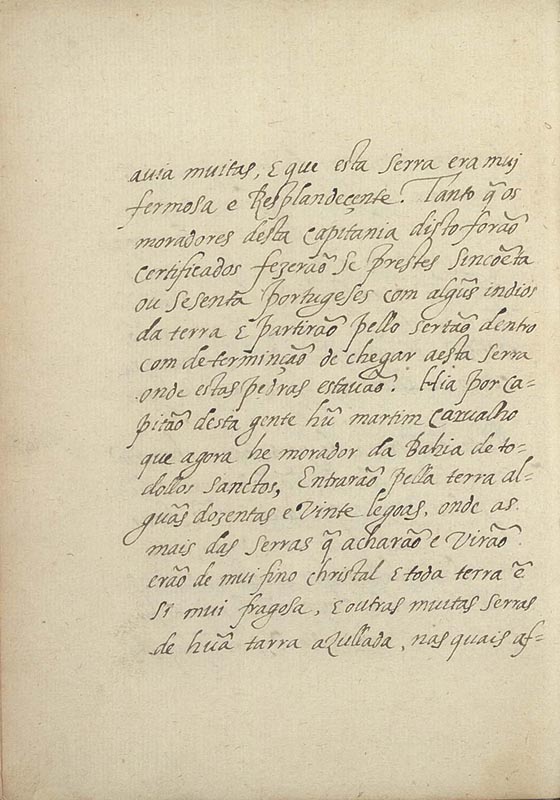 auia muitas, E que esta serra era muj
fermosa e Resplandeçente. Tanto q̃ os
moradores desta capitania disto forão
certificados fezerão se prestes sincoẽta
ou sesenta portugeses com algũs indios
da terra E partirão pello sertão dentro
com determinção de chegar a esta serra
onde estas pedras estauão. Hia por ca=
pitão desta gente hũ martim carualho
que agora he morador da Bahia de to=
dollos sanctos, Entrarão pella terra al=
guãs dozentas e vinte legoas, onde as
mais das serras q̃ acharão e virão
erão de mui fino christal E toda terra ẽ
si mui fragosa, E outras muitas serras
de huã tarra azullada, nas quais af=